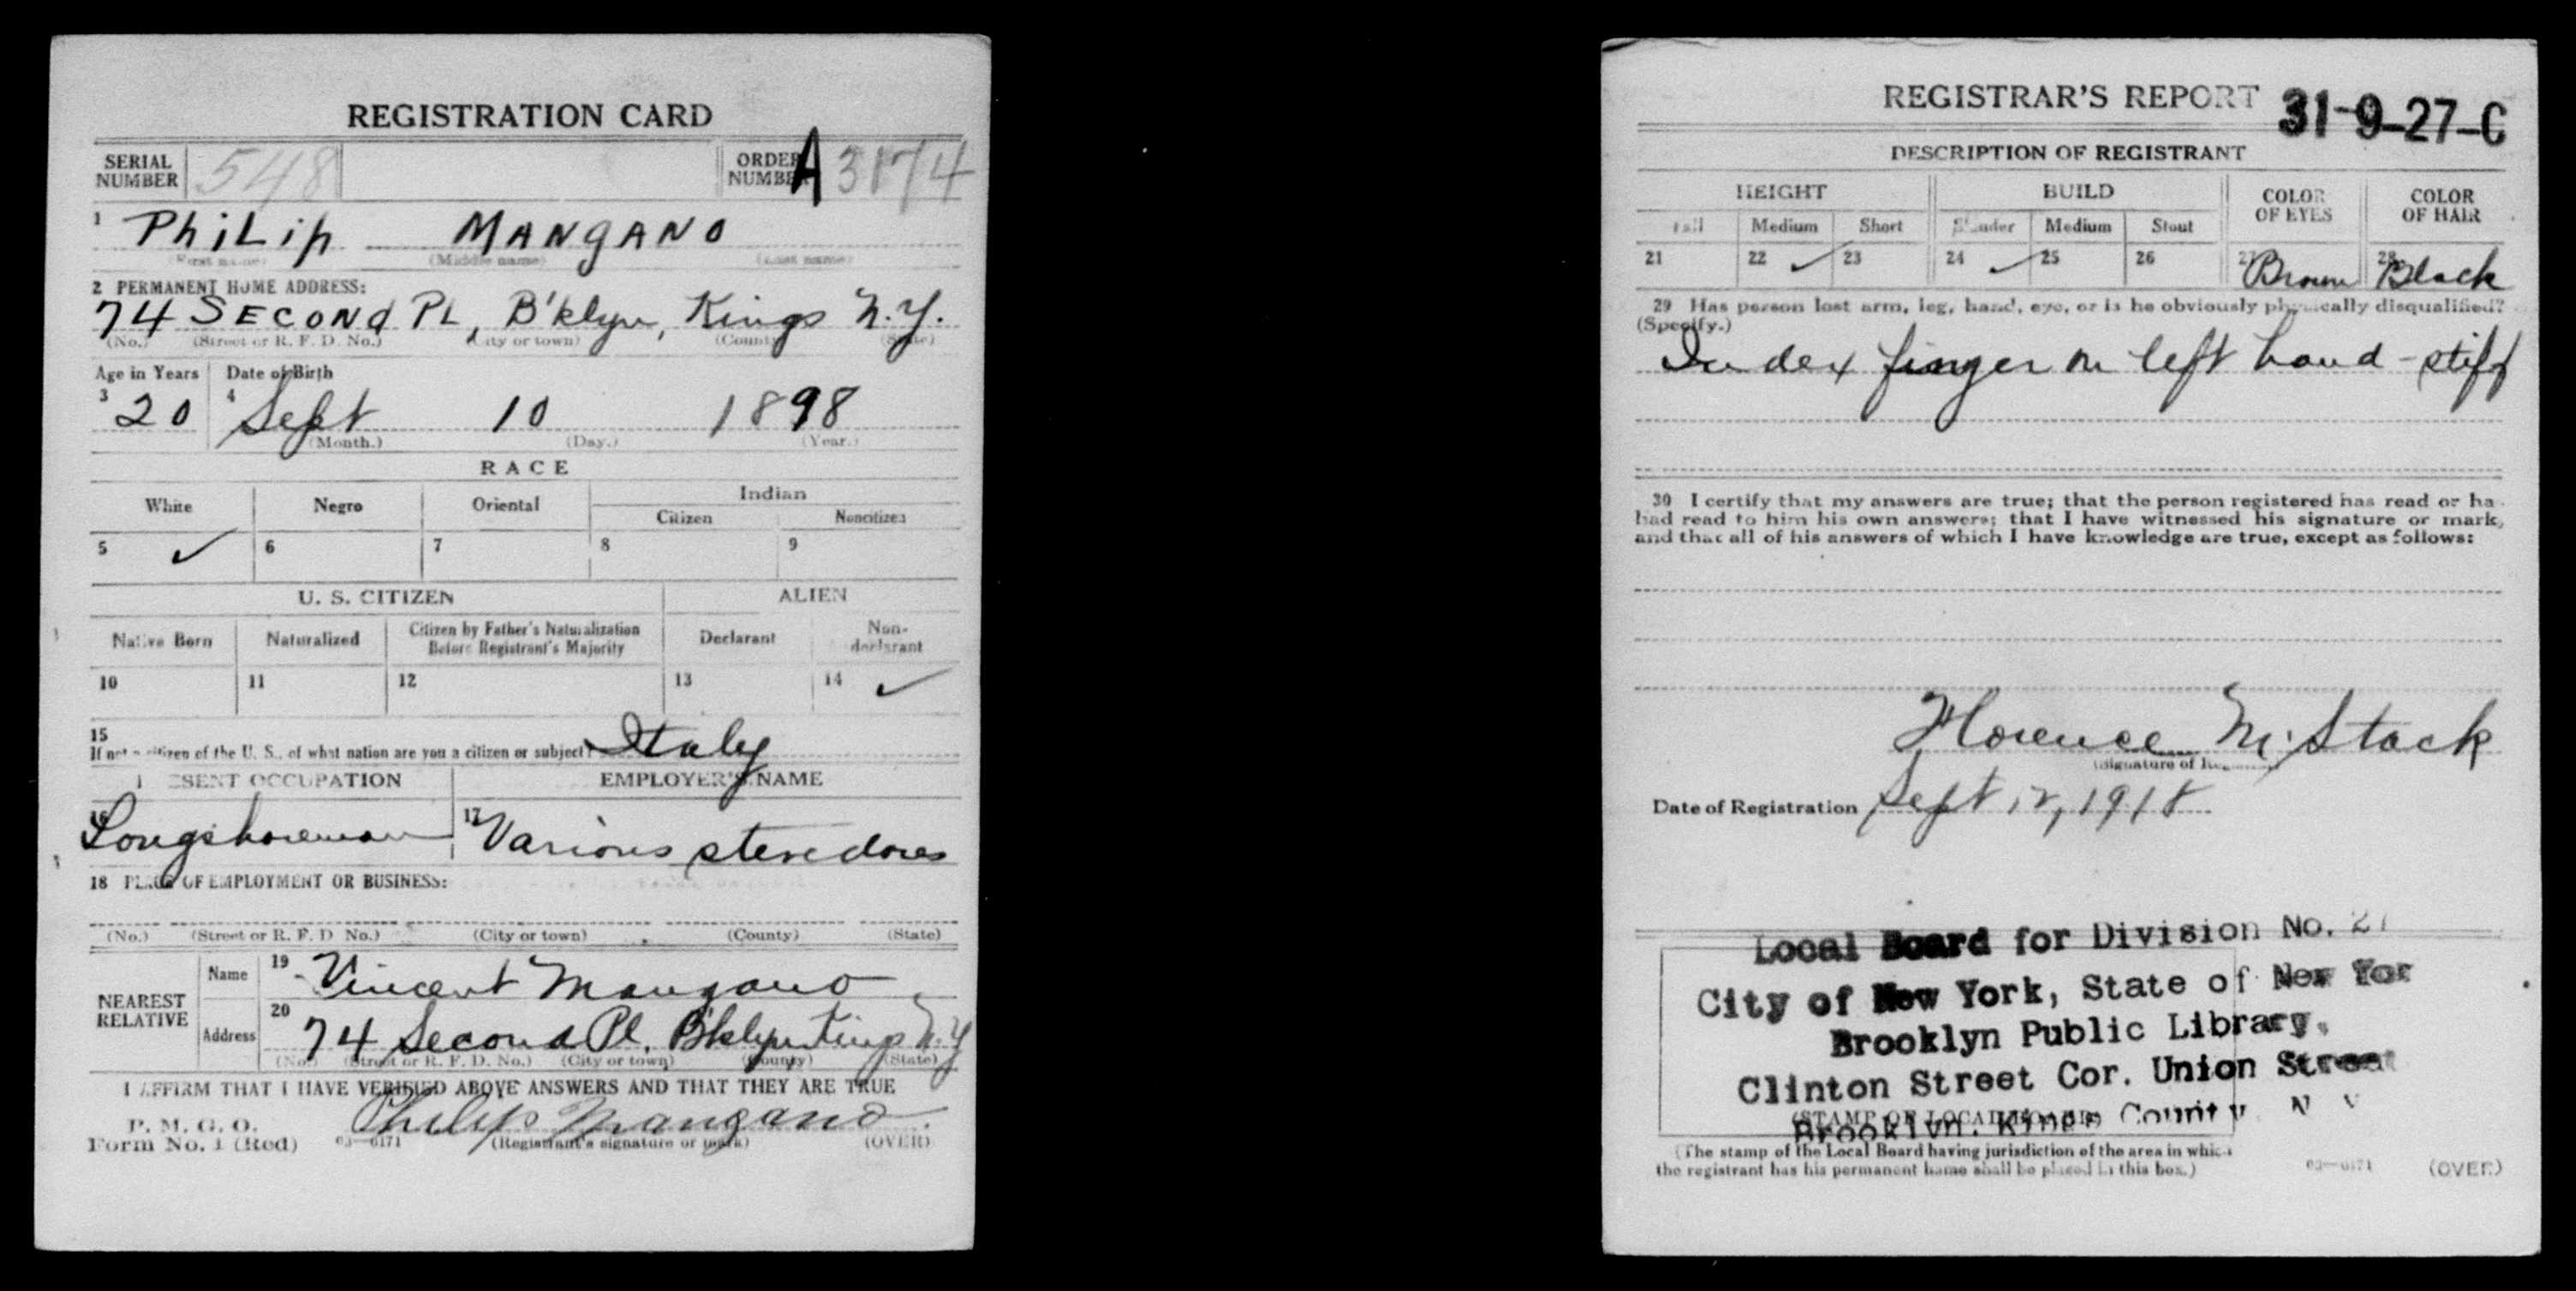 REGISTRATION CARD
SERIAL NUMBER 548 ORDER NUMBER A 3174
1 PhiLip MANGANO
(First name) (Middle name) (Last name)
2 PERMANENT HOME ADDRESS:
74 SECONd PL, B'klyn, Kings N.Y.
(No.) (Street or R. F. D. No.) (City or town) (County) (State)
Age in Years Date of Birth
3 20 4 Sept 10 1898
(Month.) (Day.) (Year.)
RACE
White Negro Oriental Indian
Citizen Noncitizen
5 ✓ 6 7 8 9
U. S. CITIZEN ALIEN
Native Born Naturalized Citizen by Father's Naturalization Before Registrant's Majority Declarant Non-declarant
10 11 12 13 14 ✓
15
If not a citizen of the U. S., of what nation are you a citizen or subject? Italy
PRESENT OCCUPATION EMPLOYER'S NAME
16 Longshoreman 17 Various stevedores
18 PLACE OF EMPLOYMENT OR BUSINESS:
(No.) (Street or R. F. D. No.) (City or town) (County) (State)
NEAREST RELATIVE
Name 19 Vincent Mangano
Address 20 74 Second Pl. B'klyn Kings N.Y
(No.) (Street or R. F. D. No.) (City or town) (County) (State)
I AFFIRM THAT I HAVE VERIFIED ABOVE ANSWERS AND THAT THEY ARE TRUE
P. M. G. O.
Form No. 1 (Red) 03—6171 Philip Mangano
(Registrant's signature or mark) (OVER)
REGISTRAR'S REPORT 31-9-27-C
DESCRIPTION OF REGISTRANT
HEIGHT BUILD COLOR OF EYES COLOR OF HAIR
Tall Medium Short Slender Medium Stout
21 22 ✓ 23 24 ✓ 25 26 27 Brown 28 Black
29 Has person lost arm, leg, hand, eye, or is he obviously physically disqualified?
(Specify.)
Index finger on left hand - stiff
30 I certify that my answers are true; that the person registered has read or has
had read to him his own answers; that I have witnessed his signature or mark,
and that all of his answers of which I have knowledge are true, except as follows:
Florence M. Stack
(Signature of
Date of Registration Sept 12, 1918
Local Board for Division No. 27
City of New York, State of New Yor
Brooklyn Public Library,
Clinton Street Cor. Union Street
(STAMP OF LOCAL BOARD)
Brooklyn, Kings County N Y
(The stamp of the Local Board having jurisdiction of the area in which
the registrant has his permanent home shall be placed in this box.) 03—6171 (OVER)